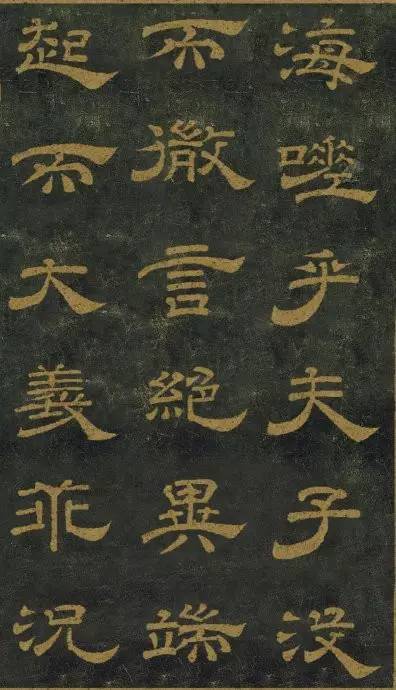 海嗟乎夫子沒
而微言絕異端
起而大義乖況